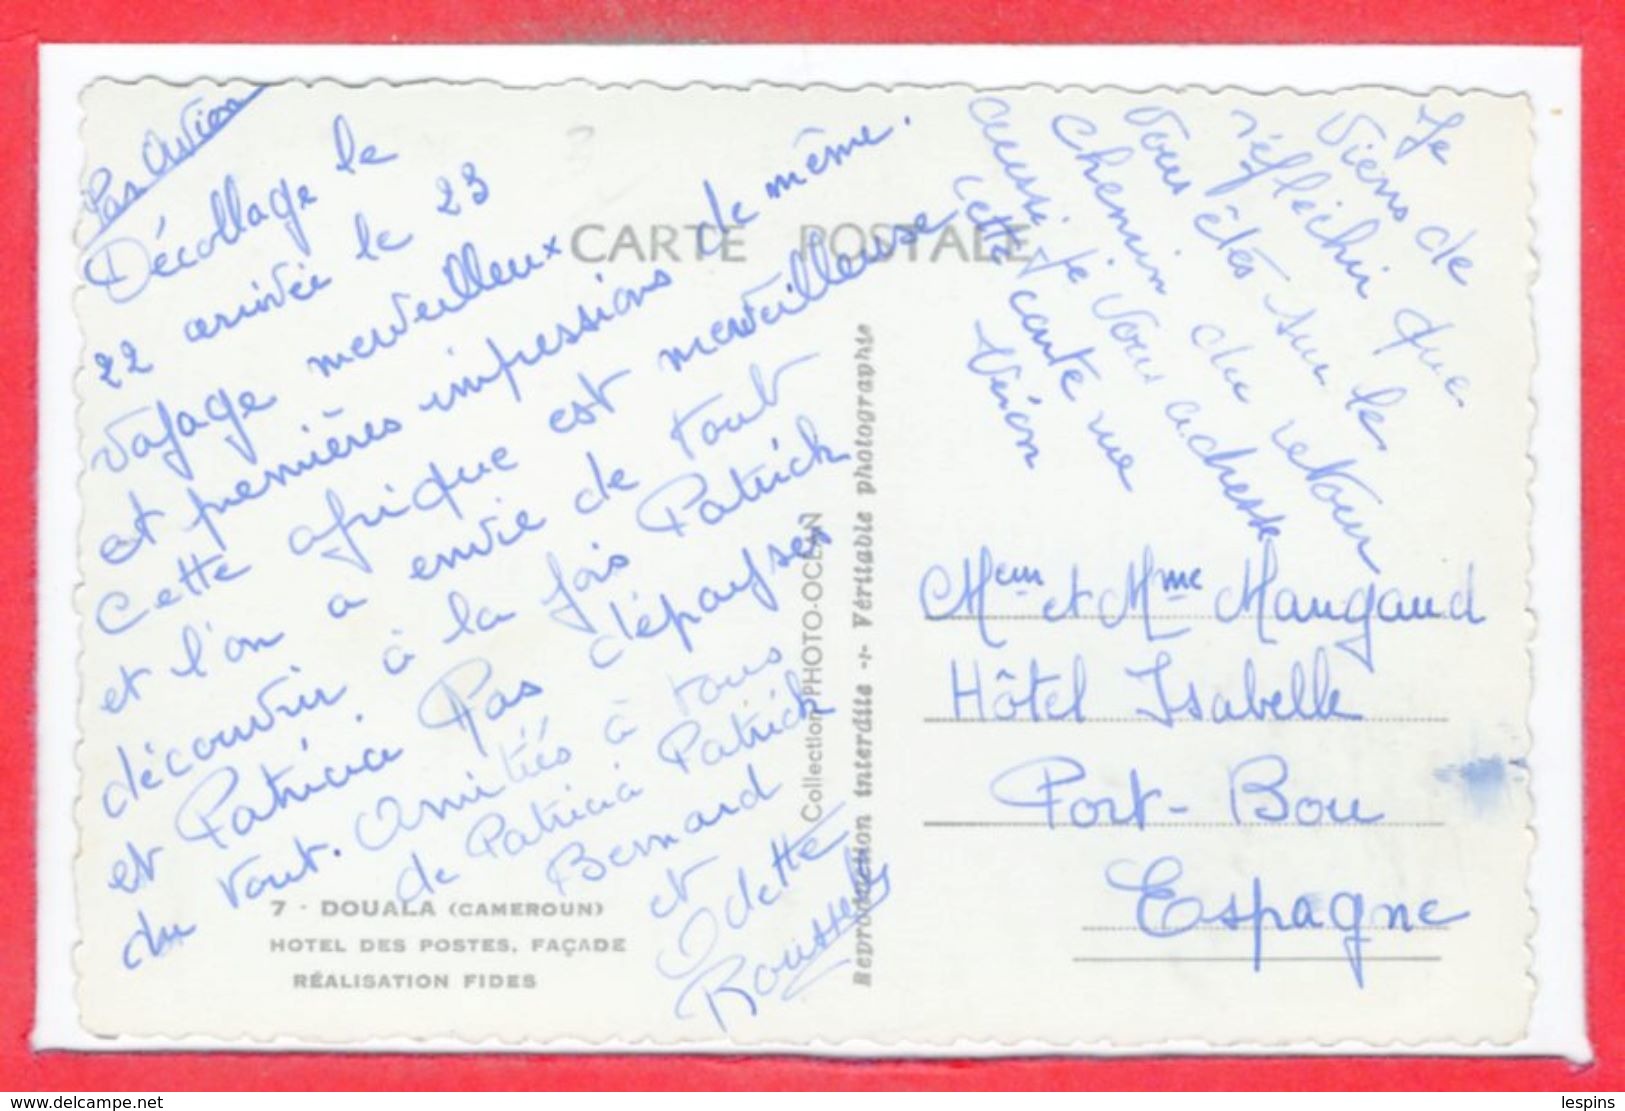 Par Avion
Décollage le
22 arrivée le 23
voyage merveilleux
et premières impressions de même.
Cette afrique est merveilleuse
et l'on a envie de tout
découvrir à la fois Patrick
et Patricia Pas dépaysés
du tout. Amitiés à tous
de Patricia Patrick
Bernard
et
Odette
CARTE POSTALE
7 - DOUALA (CAMEROUN)
HOTEL DES POSTES, FAÇADE
RÉALISATION FIDES
Collection PHOTO-OCÉAN
Reproduction interdite -:- Véritable photographie
Je
viens de
réfléchir que
vous êtes sur le
chemin du retour
aussi je vous adresse
cette carte rue
Meur et Mme Maugaud
Hôtel Isabelle
Port-Bou
Espagne
delcampe.net
lespins